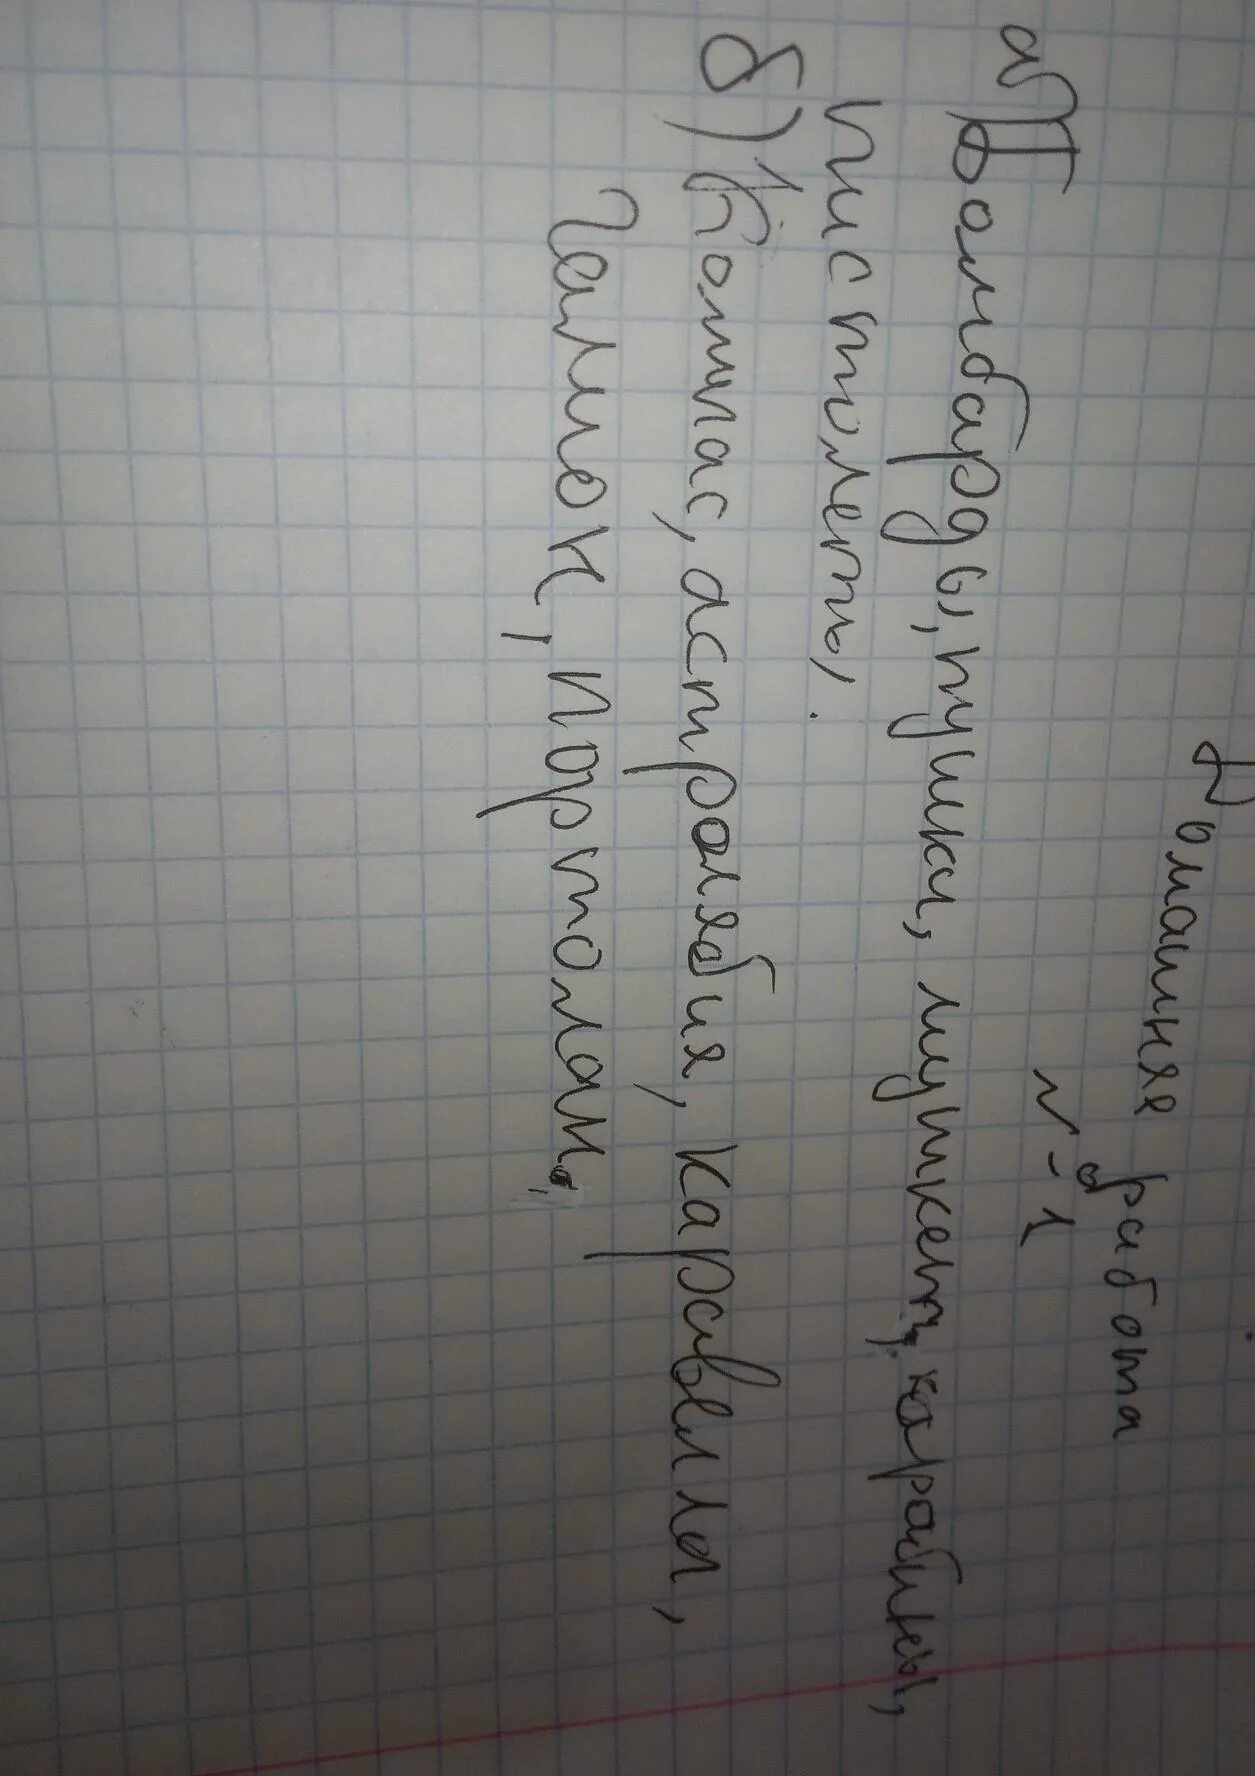 Домашняя работа
№-1
а) Бомбарды, пушки, мушкеты, карабины,
пистолеты,
б) Компас, астролябия, каравелла,
Галион, портолан,